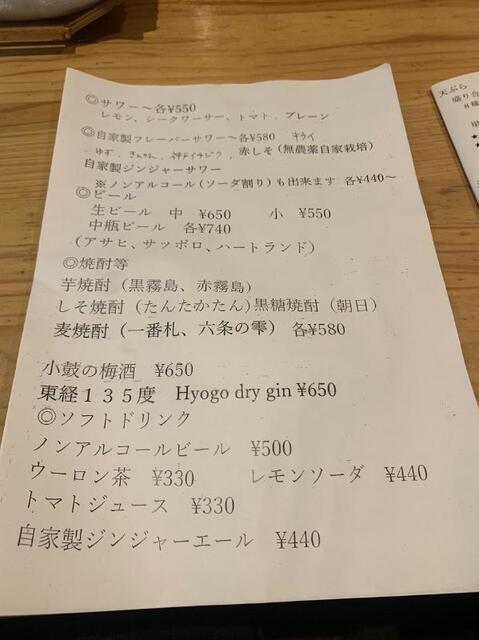 ◎サワー～各¥550
レモン、シークワーサー、トマト、プレーン
◎自家製フレーバーサワー～各¥580 キウイ
ゆず、きんかん、 赤しそ(無農薬自家栽培)
自家製ジンジャーサワー
※ノンアルコール(ソーダ割り)も出来ます 各¥440～
◎ビール
生ビール 中 ¥650 小 ¥550
中瓶ビール 各¥740
(アサヒ、サッポロ、ハートランド)
◎焼酎等
芋焼酎(黒霧島、赤霧島)
しそ焼酎(たんたかたん)黒糖焼酎(朝日)
麦焼酎(一番札、六条の雫) 各¥580
小鼓の梅酒 ¥650
東経１３５度 Hyogo dry gin ¥650
◎ソフトドリンク
ノンアルコールビール ¥500
ウーロン茶 ¥330 レモンソーダ ¥440
トマトジュース ¥330
自家製ジンジャーエール ¥440
天ぷら
盛り合